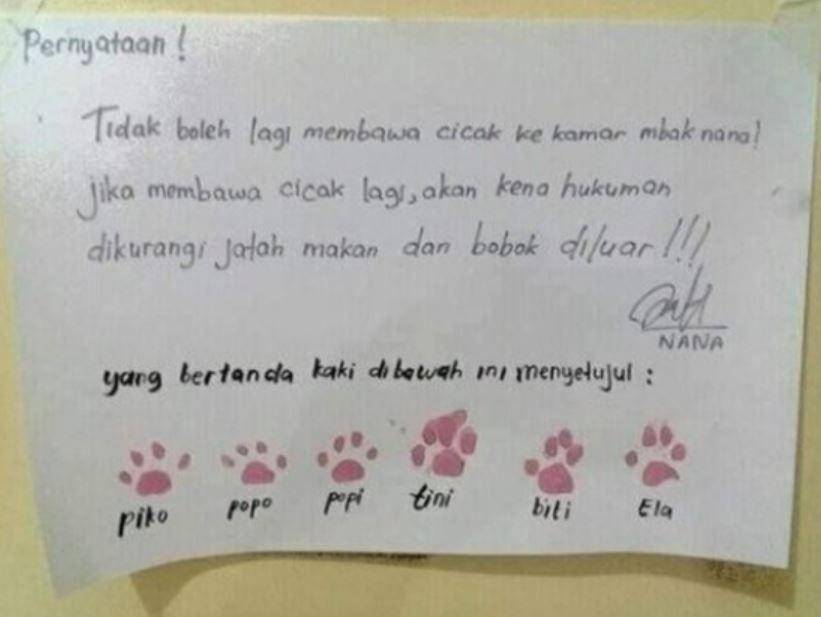 Pernyataan !
Tidak boleh lagi membawa cicak ke kamar mbak nana!
Jika membawa cicak lagi, akan kena hukuman
dikurangi jatah makan dan bobok diluar!!!
NANA
yang bertanda kaki dibawah ini menyetujui :
piko popo popi tini biti Ela